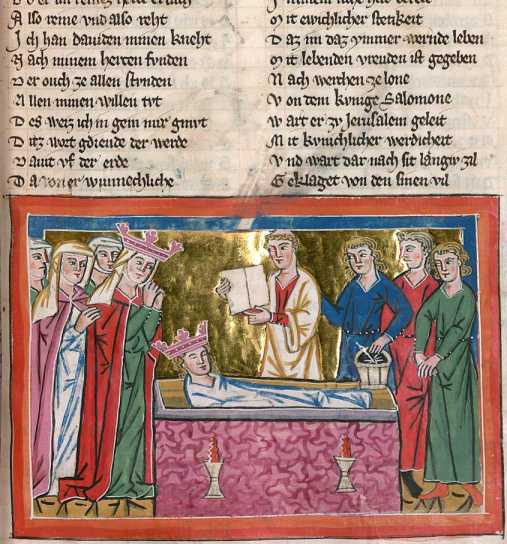 Also reine vnd also reht
Jch han dauiden minen kneht
Nach minem herzen funden
Der ouch ze allen stunden
Allen minen willen tvt
Des weiz ich in gein mir
Ditz wort der werde
Dauit vf der erde
Da von er wunnechliche
Mit ewichlicher stetikeit
Daz im daz ymmer wernde leben
Mit lebenden vreuden ist gegeben
Nach werchen ze lone
Von dem kvnige Salomone
Wart er zv Jerusalem geleit
Mit kvnichlicher werdicheit
Vnd wart dar nach sit langiv zil
Geklaget von den sinen vil